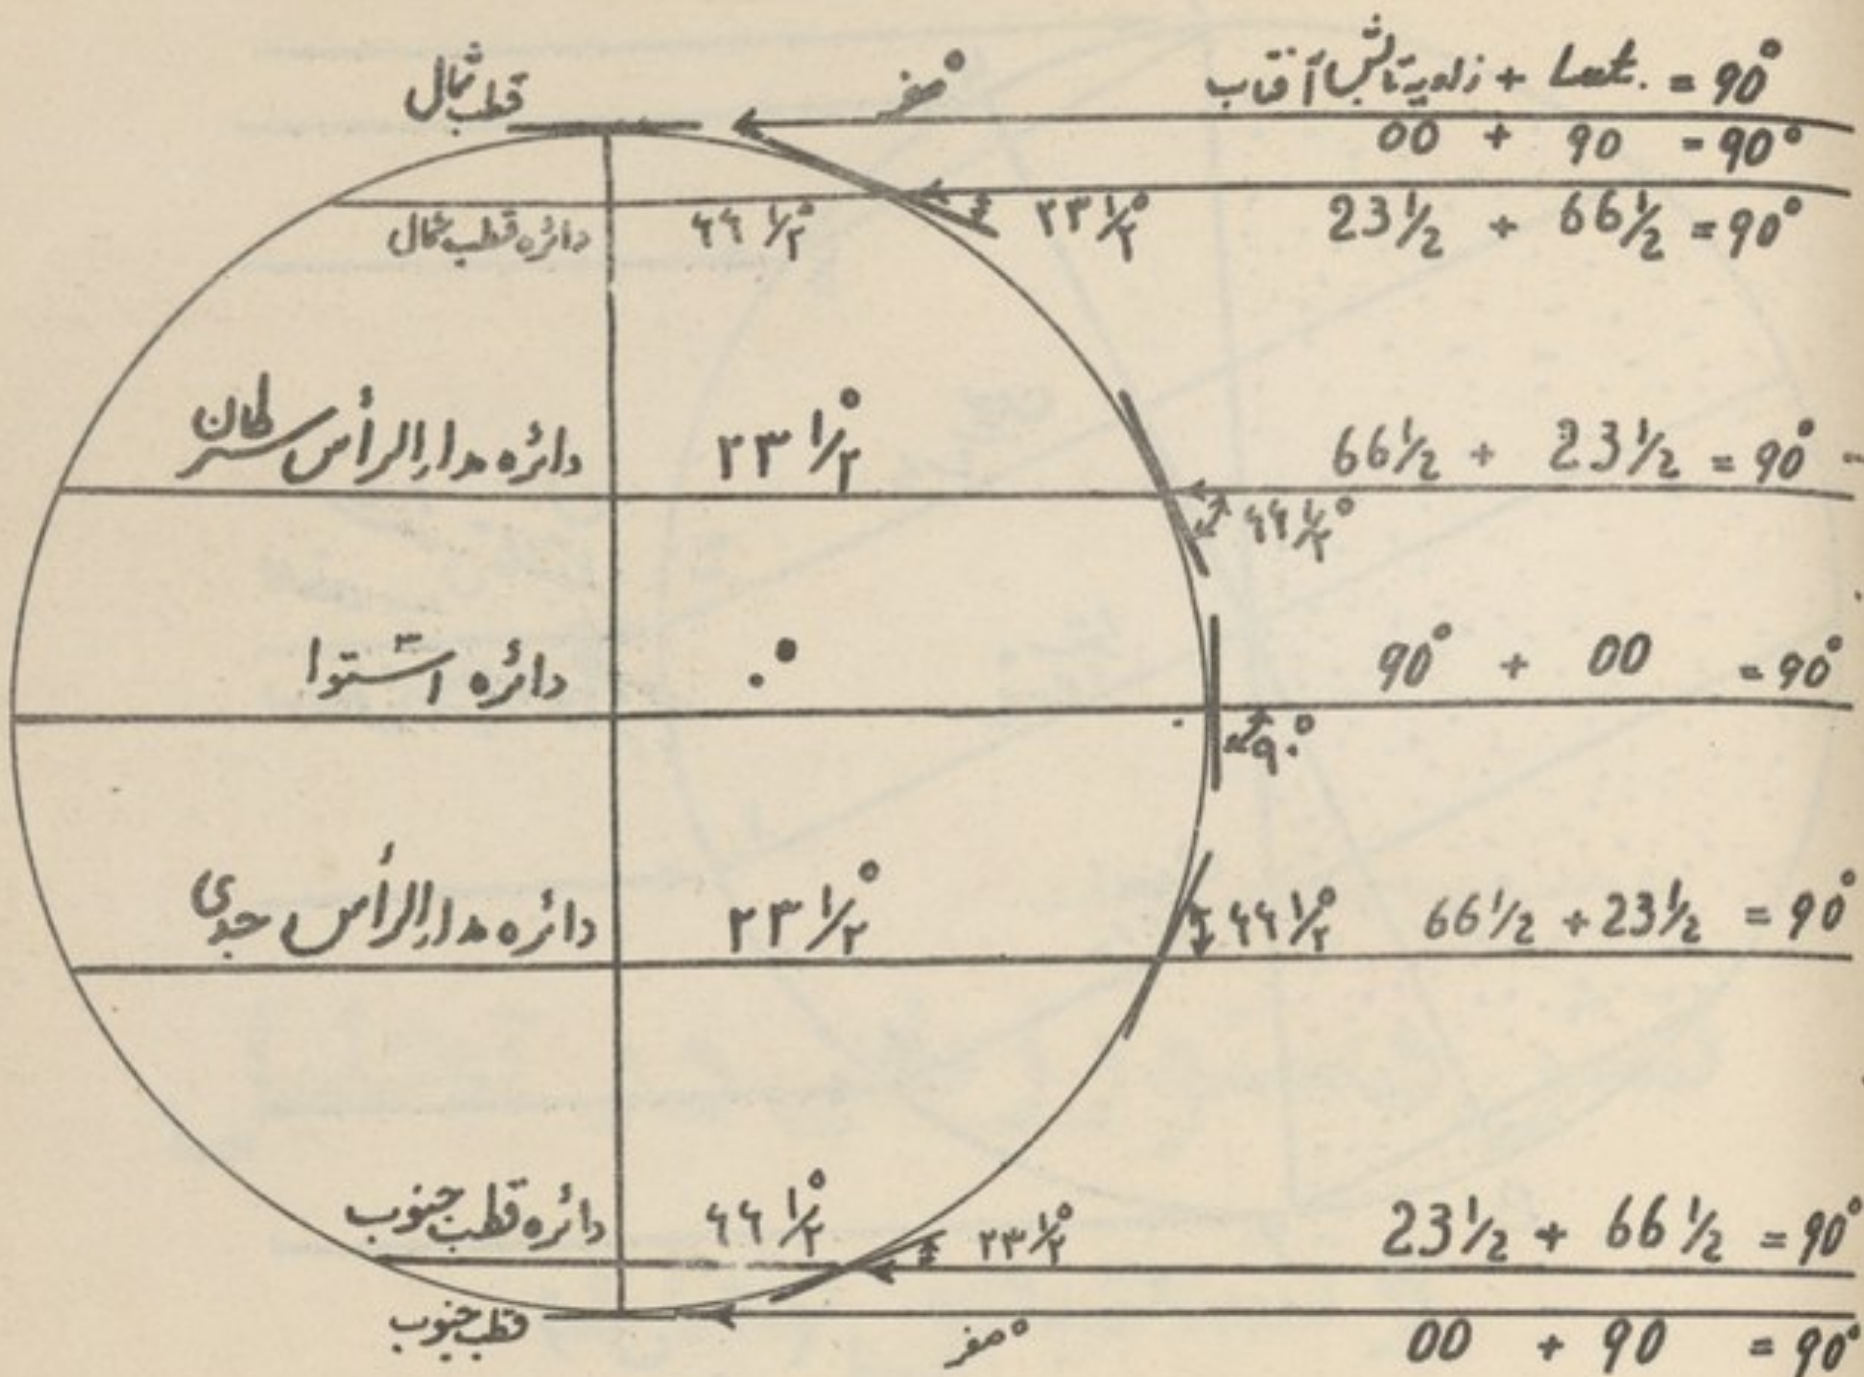 قطب شمال
°صفر
زاویه تابش آفتاب + Lat. = 90°
00 + 90 = 90°
دائره قطب شمال ۶۶ ۱/۲° ۲۳ ۱/۲° 23 1/2 + 66 1/2 = 90°
دائره مدار الرأس سرطان ۲۳ ۱/۲° 66 1/2 + 23 1/2 = 90°
۶۶ ۱/۲°
دائره استوا ۰° 90° + 00 = 90°
۹۰°
دائره مدار الرأس جدی ۲۳ ۱/۲° ۶۶ ۱/۲° 66 1/2 + 23 1/2 = 90°
دائره قطب جنوب ۶۶ ۱/۲° ۲۳ ۱/۲° 23 1/2 + 66 1/2 = 90°
قطب جنوب °صفر 00 + 90 = 90°